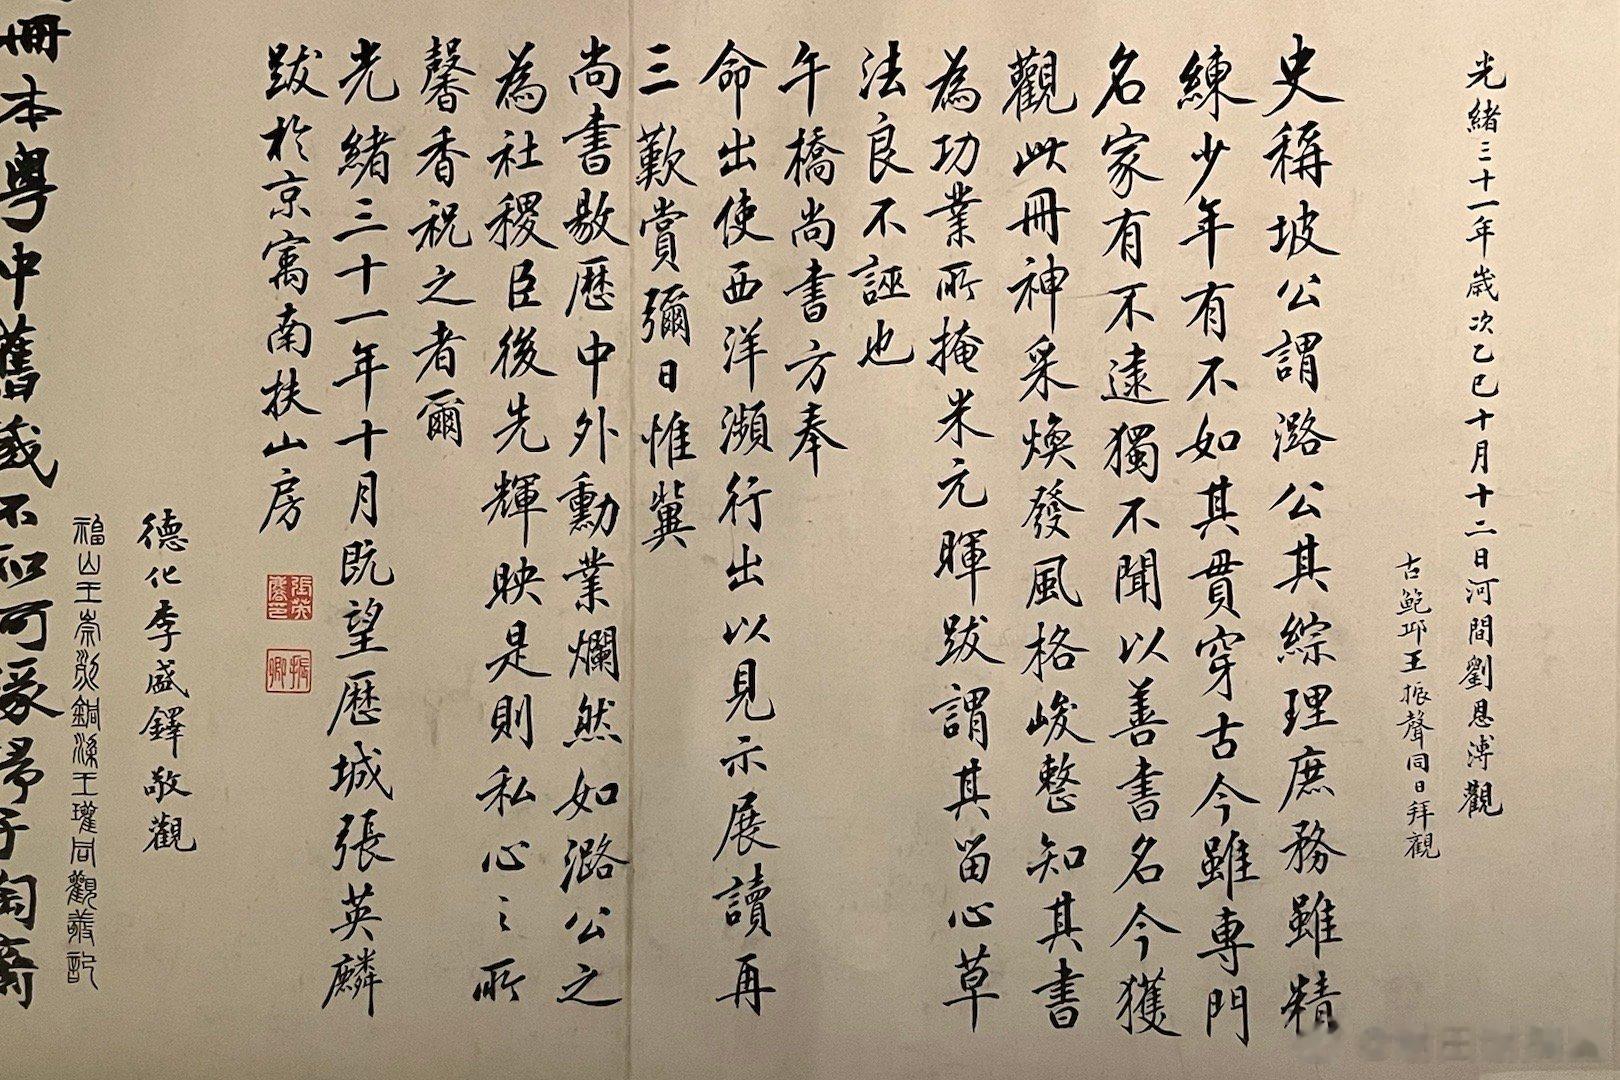 光緒三十一年歲次乙巳十月十二日河間劉恩溥觀
古鮑邱王振聲同日拜觀
史稱坡公謂潞公其綜理庶務雖精
練少年有不如其貫穿古今雖專門
名家有不逮獨不聞以善書名今獲
觀此冊神采煥發風格峻整知其書
為功業所掩米元暉跋謂其留心草
法良不誣也
午橋尚書方奉
命出使西洋瀕行出以見示展讀再
三歎賞彌日惟冀
尚書敭歷中外勳業爛然如潞公之
為社稷臣後先輝映是則私心之所
馨香祝之者爾
光緒三十一年十月既望歷城張英麟
跋於京寓南扶山房
張英麟印
振卿
德化李盛鐸敬觀
福山王崇烈銅梁王瓘同觀並記
冊本粵中舊藏不知何緣歸于匋齋